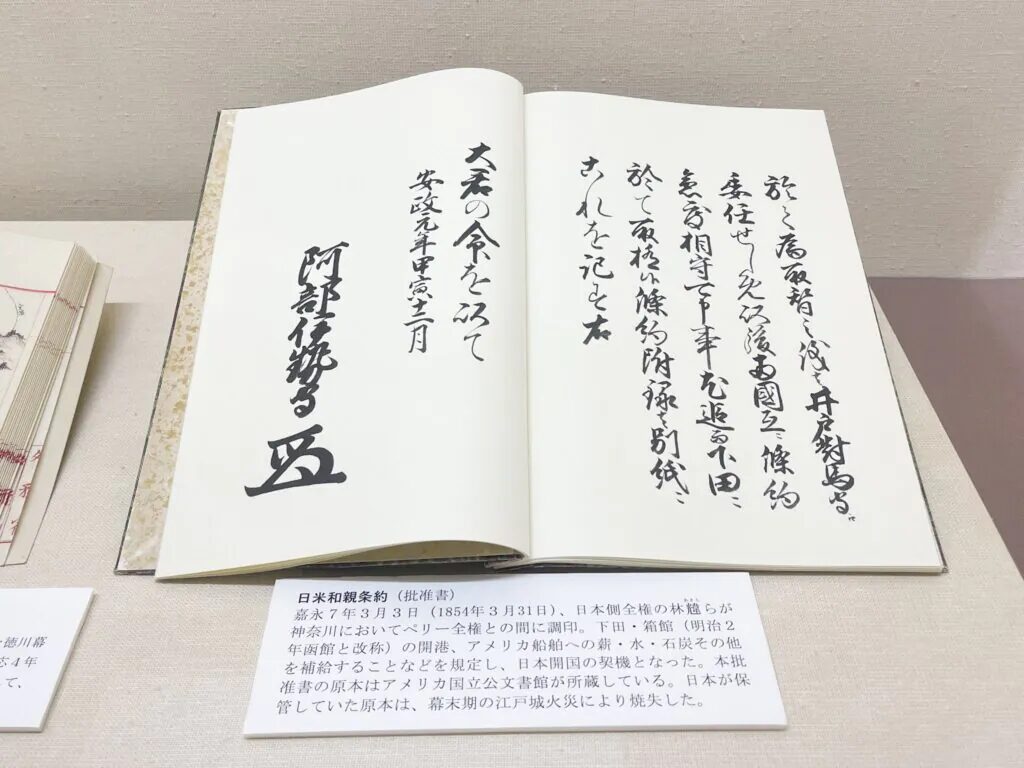 於て為取替之儀は井戸對馬守に
委任せしめ以後両國互ニ條約
急度相守可申事尤追而下田ニ
於て取極候條約附録は別紙ニ
これを記す右
大君の命を以て
安政元年甲寅十二月
阿部伊勢守
日米和親条約（批准書）
嘉永７年３月３日（1854年３月31日）、日本側全権の林韑らが
神奈川においてペリー全権との間に調印。下田・箱館（明治２
年函館と改称）の開港、アメリカ船舶への薪・水・石炭その他
を補給することなどを規定し、日本開国の契機となった。本批
准書の原本はアメリカ国立公文書館が所蔵している。日本が保
管していた原本は、幕末期の江戸城火災により焼失した。
徳川幕
応４年
て、